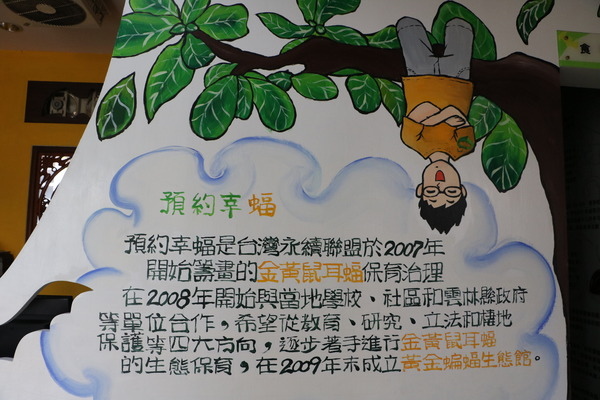 食
預約幸蝠
預約幸蝠是台灣永續聯盟於2007年
開始籌畫的金黃鼠耳蝠保育治理
在2008年開始與當地學校、社區和雲林縣政府
等單位合作，希望從教育、研究、立法和棲地
保護等四大方向，逐步著手進行金黃鼠耳蝠
的生態保育，在2009年末成立黃金蝙蝠生態館。